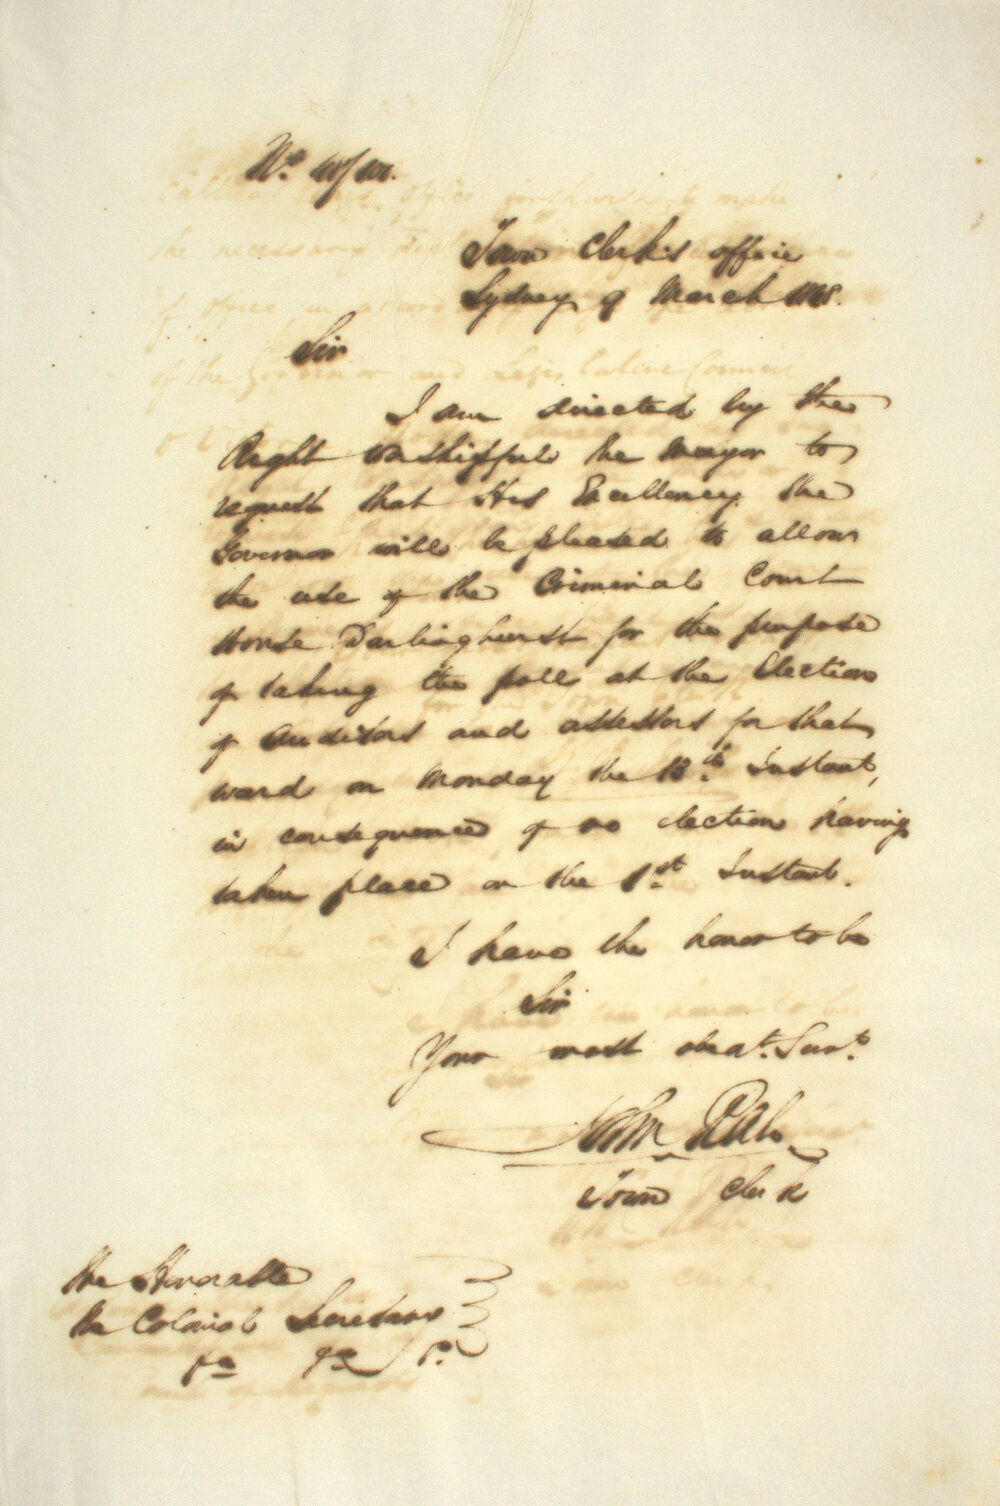 Town Clerk's office
Sydney 9 March
Sir
I am directed by the
Right Worshipful the Mayor to
request that His Excellency the
Governor will be pleased to allow
the use of the Criminal Court
House Darlinghurst for the purpose
of taking the poll at the Election
of Auditors and assessors for that
ward on Monday the 13th. Instant,
in consequence of no election having
taken place on the 1st. Instant.
I have the honor to be
Sir
Your most obedt. Servt.
John
Town Clerk
The Honorable
the Colonial Secretary